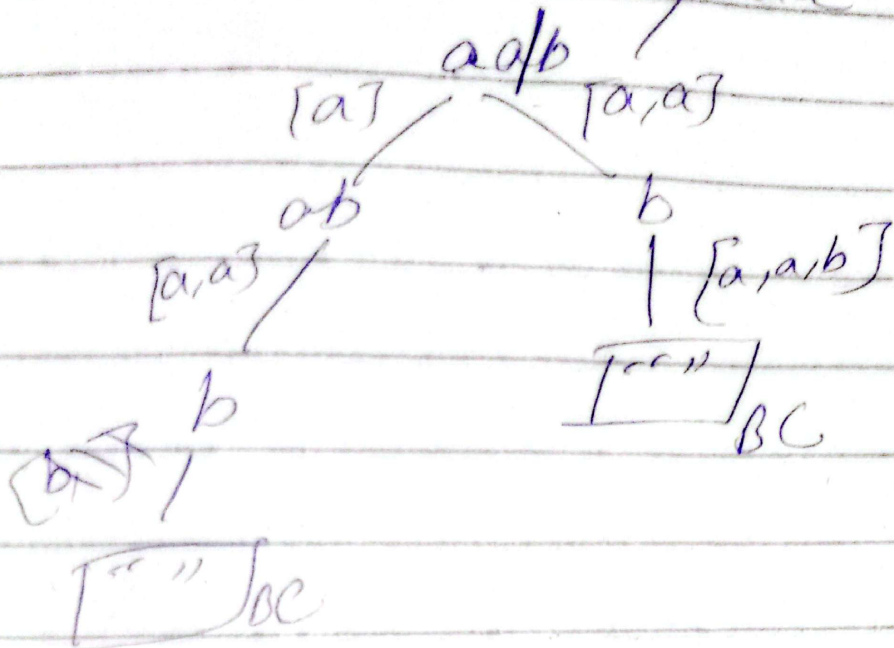 aa/b
[a] [a,a]
ab b
[a,a] [a,a,b]
b “ ”
BC
“ ”
BC